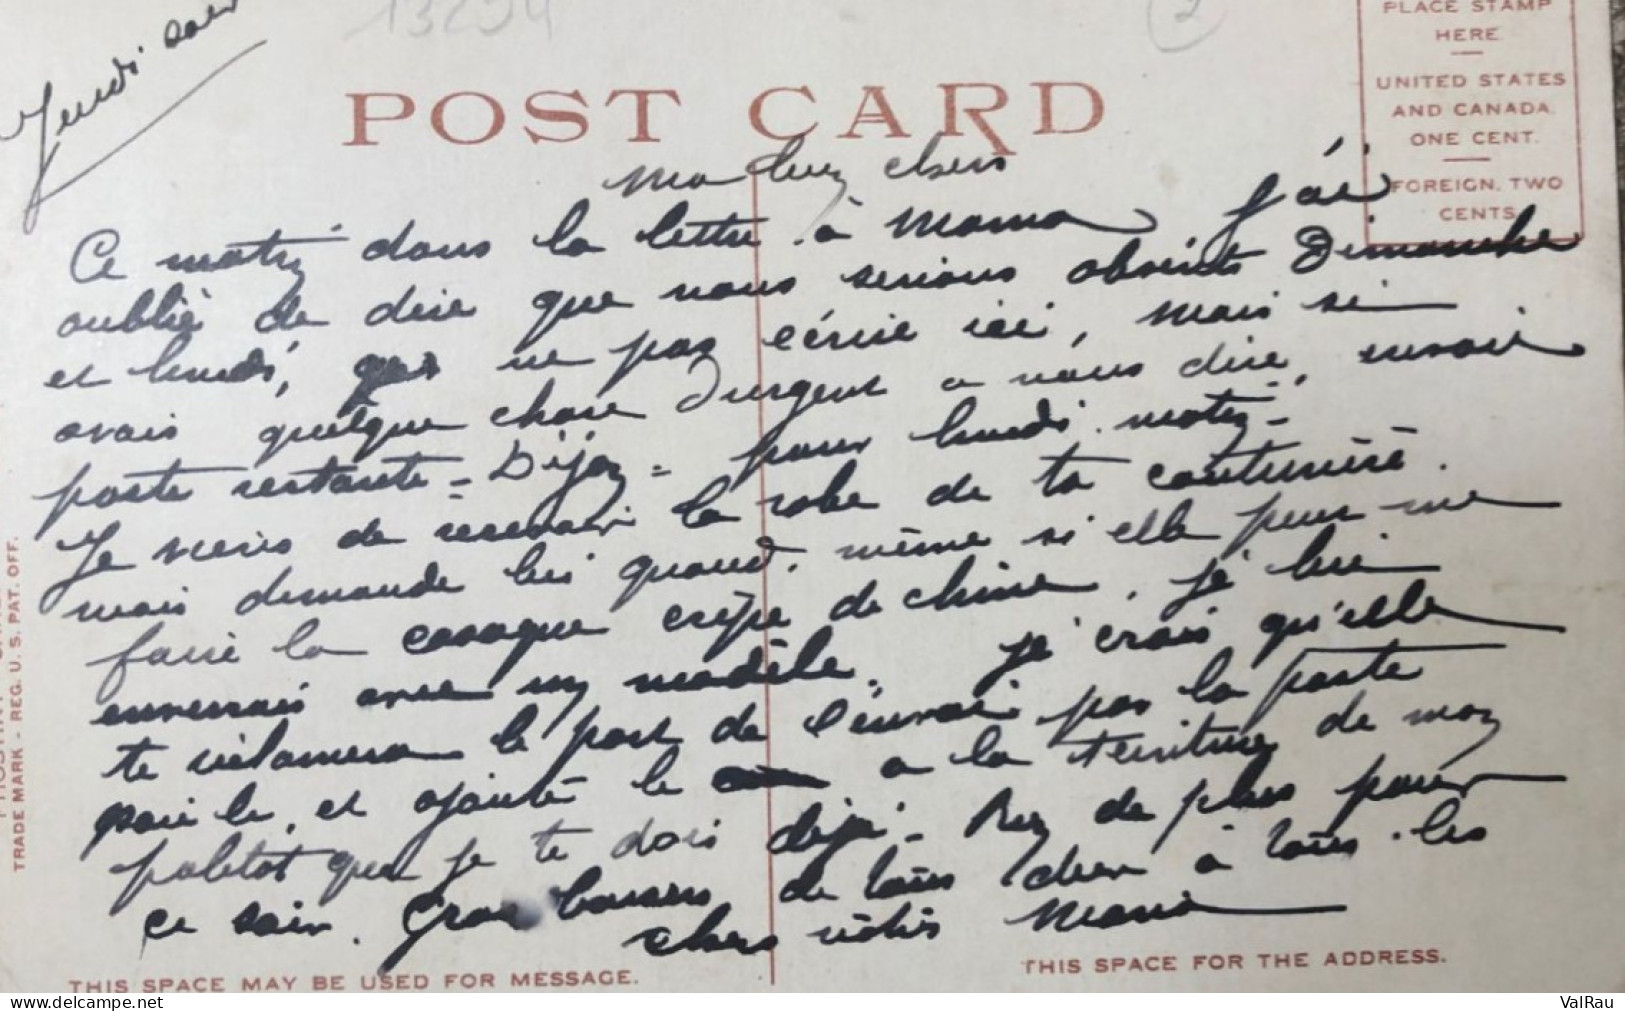 13294
2
Jeudi soir
PLACE STAMP
HERE
UNITED STATES
AND CANADA.
ONE CENT.
FOREIGN, TWO
CENTS
POST CARD
Ma chers
Ce matin dans la lettre à Mama J'ai
oublié de dire que nous serions absents Dimanche
et lundi, ne pas écrire ici, mais si
avais quelque chose d'urgent a nous dire, envoie
poste restante - Dijon - pour lundi matin -
Je viens de recevoir la robe de ta couturière.
mais demande lui quand même si elle peut me
faire la casaque crêpe de chine, je lui
enverrais avec un modèle. je crois qu'elle
te réclamera le port de l'envoi pas la poste
paie le, et ajoute le a la teinture de mon
paletot que je te dois déjà - Rien de plus pour
ce soir. Gros baisers de tous deux à tous les
chers nôtres Maria
THIS SPACE MAY BE USED FOR MESSAGE.
THIS SPACE FOR THE ADDRESS.
TRADE MARK - REG. U. S. PAT. OFF.
https://www.delcampe.net
ValRau